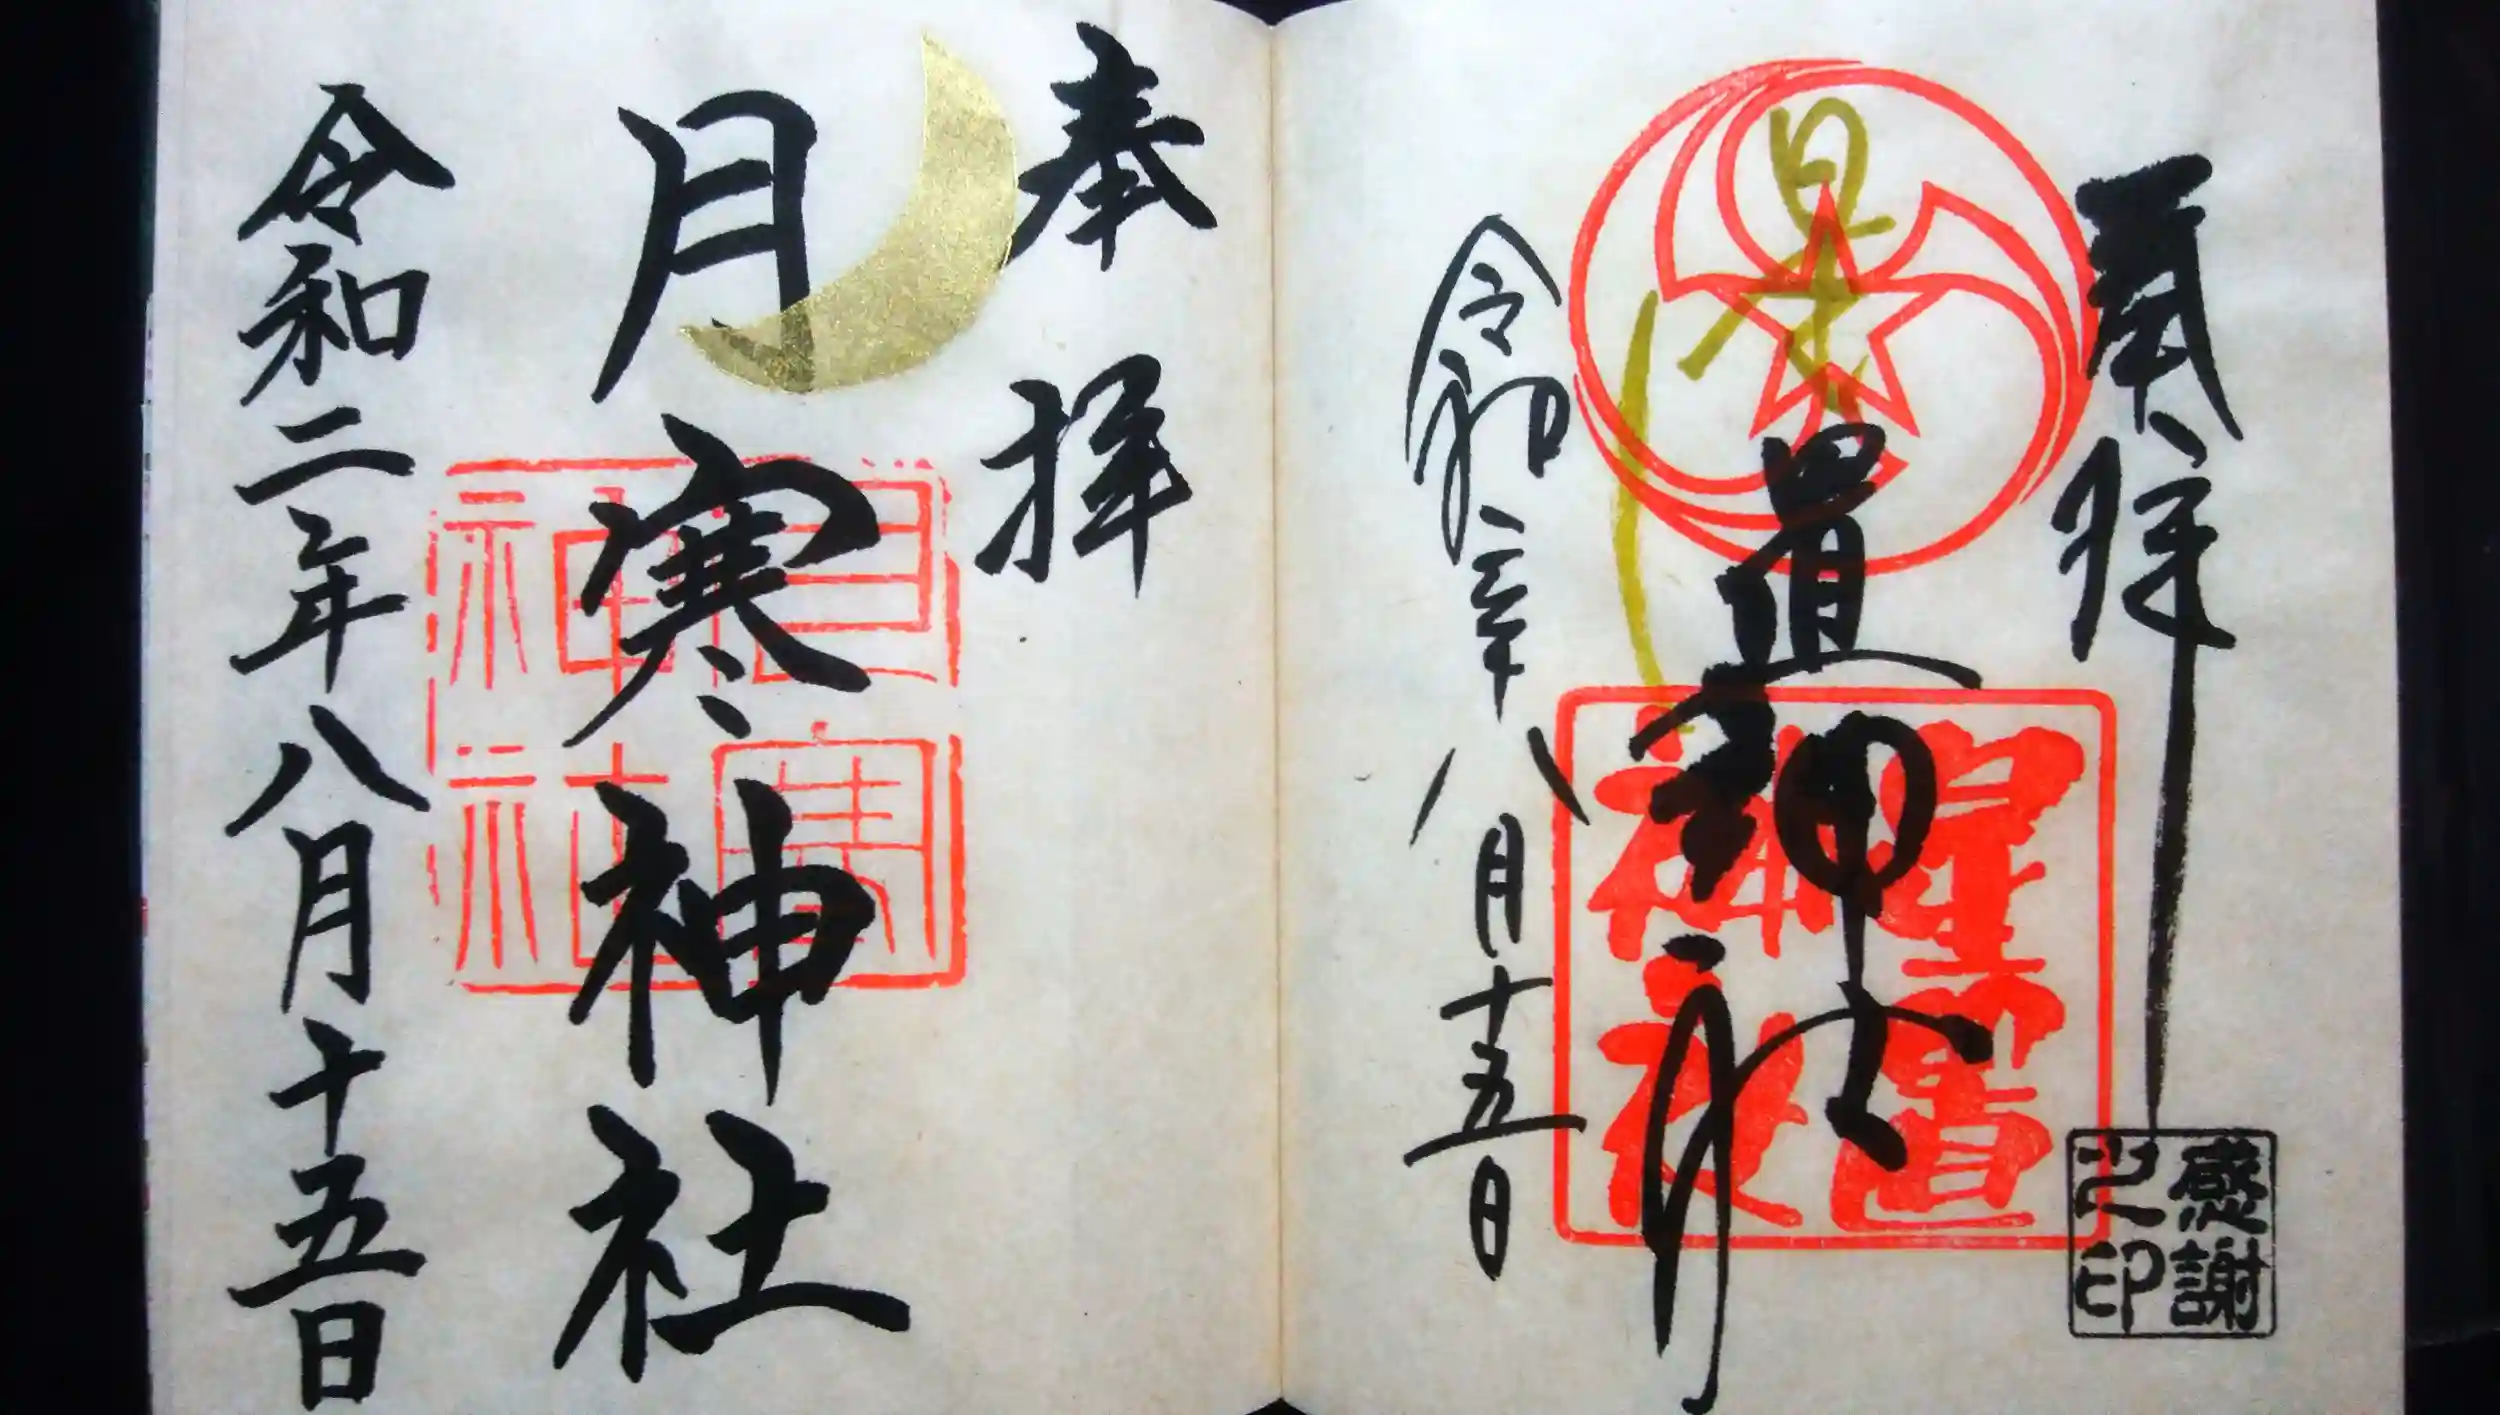 奉拝
星置神社
令和二年八月十五日
星置神社
感謝之印
奉拝
月寒神社
令和二年八月十五日
月寒神社